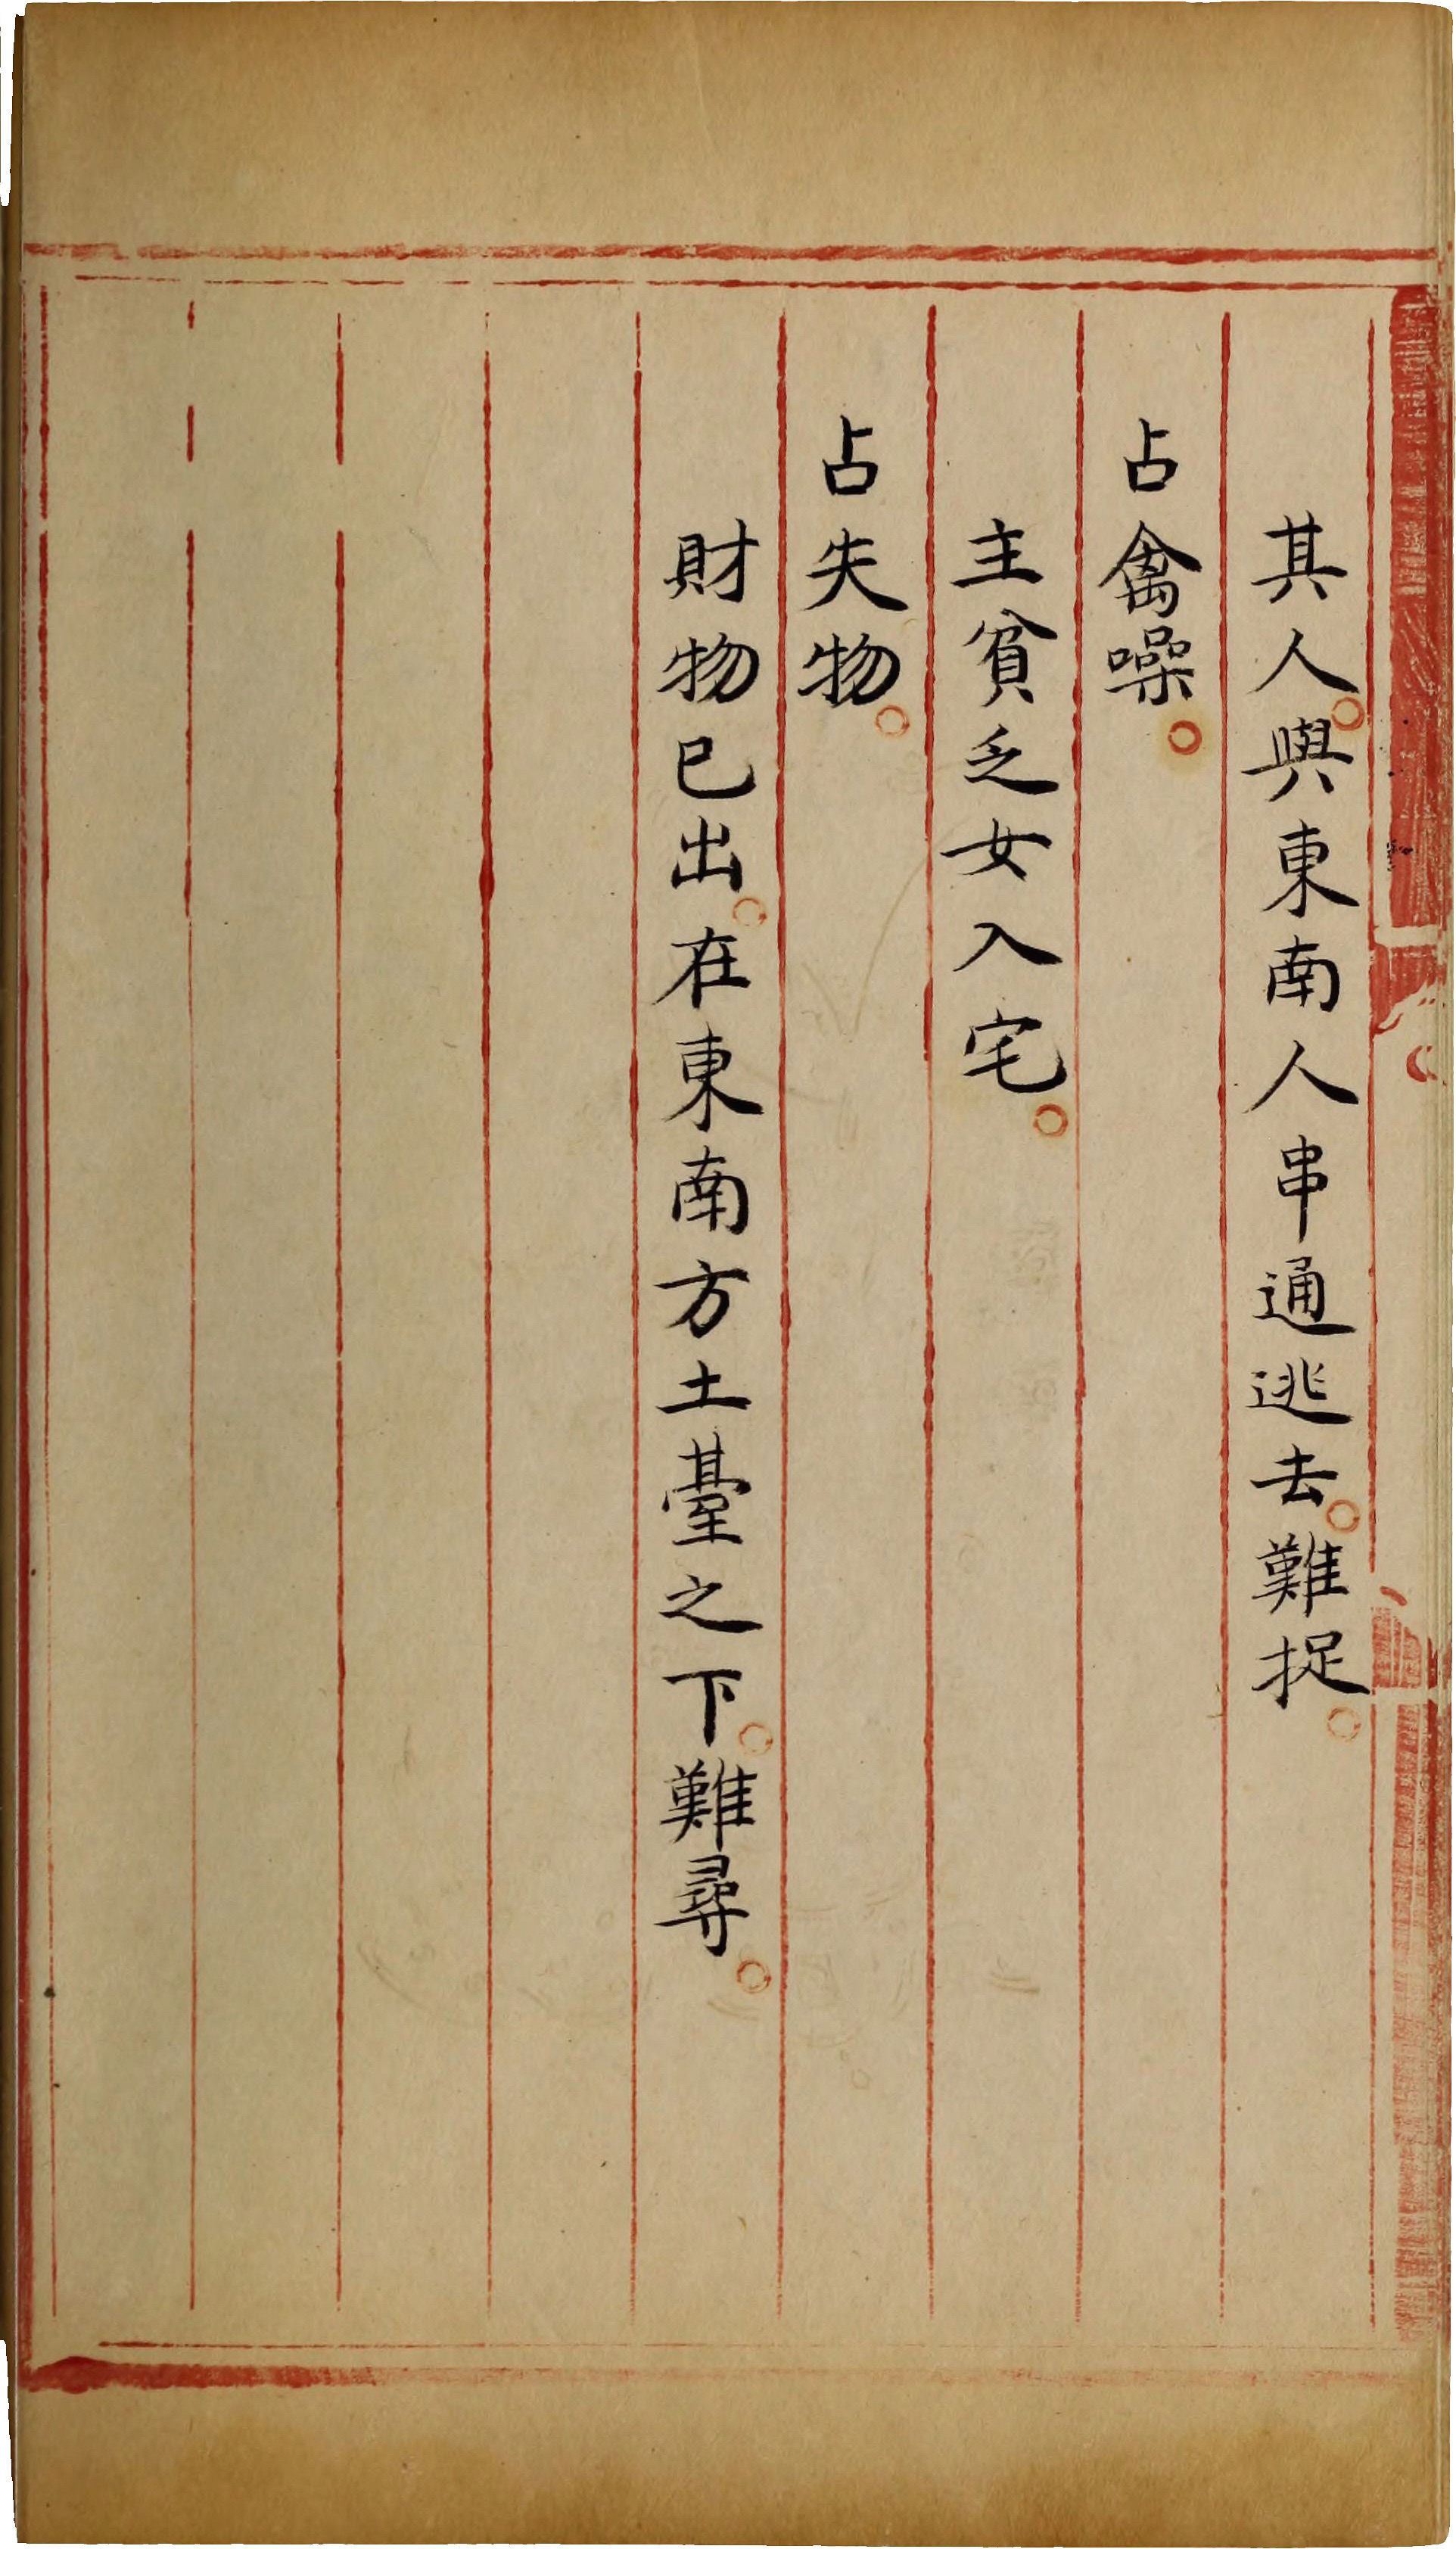 其人。與東南人串通逃去。難捉。
占禽噪。
主貧乏女入宅。
占失物。
財物已出。在東南方土臺之下。難尋。